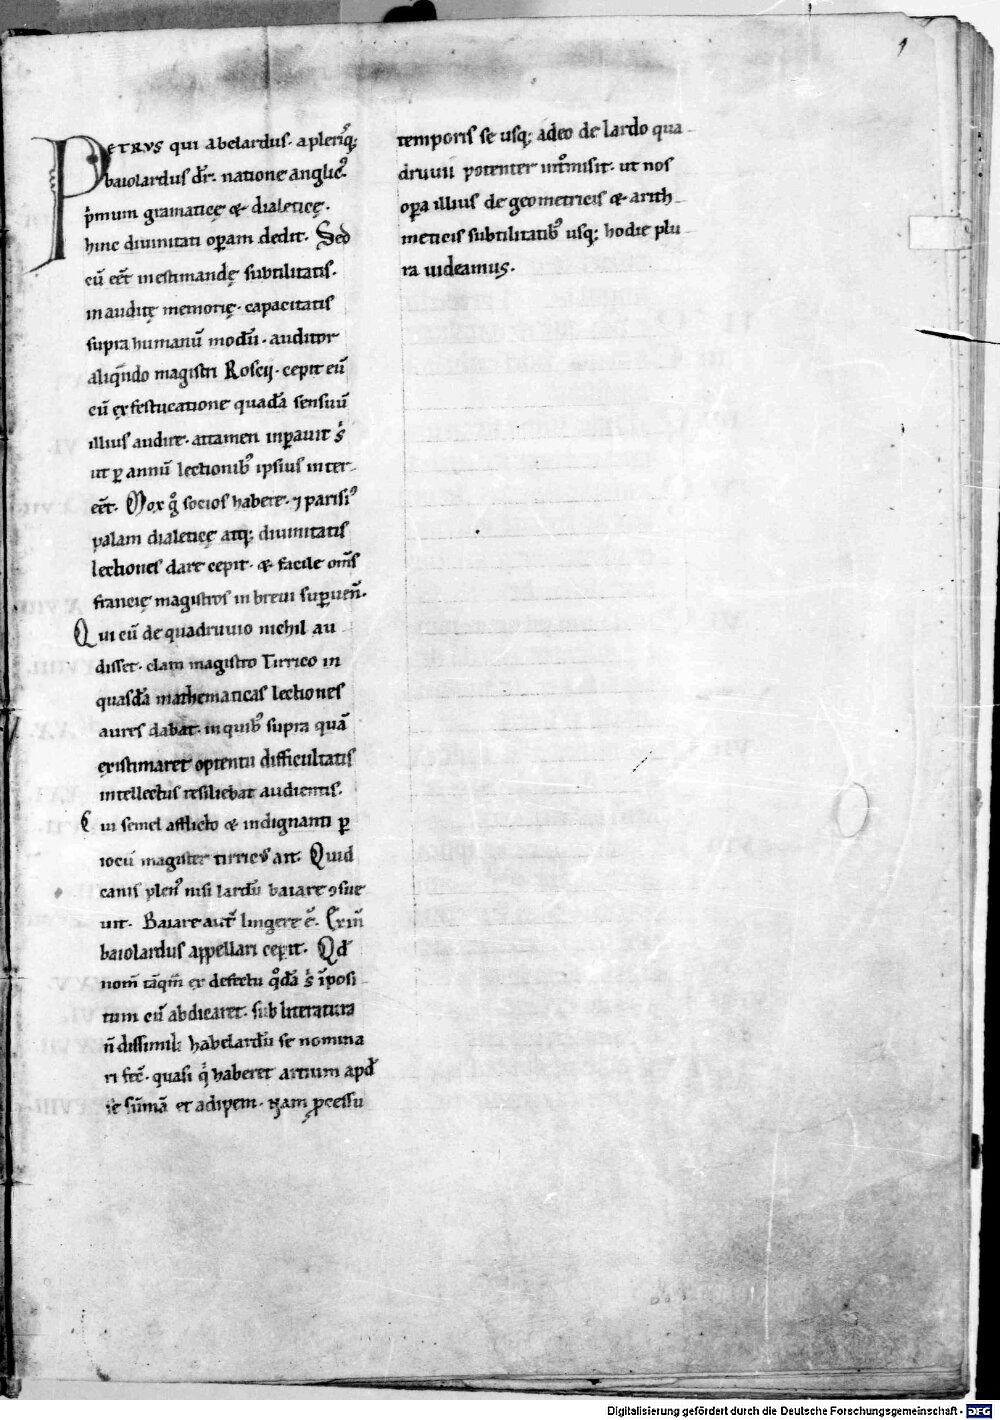 PETRVS qui abelardus. a pleriq;
baiolardus dr̄. natione anglic9.
p̄mum gramaticę & dialeticę.
hinc diuinitati opam dedit. Sed
cū eēt inestimandę subtilitatis.
inauditę memorię. capacitatis
supra humanū modū. auditor
aliqn̄do magistri Roscij. cepit eū
cū exfestucatione quadā sensuū
illius audire. attamen inpauit s'
ut p annū lectionib9 ipsius inter-
eēt. Mox g° socios habere. ⁊ parisi9
palam dialeticę atq; diuinitatis
lectiones dare cepit. & facile om̄s
francię magistros in breui supuen̄.
Qui cū de quadruuio nichil au
disset. clam magistro Tirrico in
quasdā mathematicas lectiones
aures dabat. in quib9 supra quā
existimaret optentu difficultatis
intellectus resiliebat audientis.
Cui semel afflicto & indignanti p
iocū magister tirricus ait. Quid
canis plen9 nisi lardū baiare ꝯsue
uit. Baiare aut̄ lingere ē. Exin̄
baiolardus appellari cepit. Qd̄
nom̄ tāqm̄ ex defectu q°dā s' īposi
tum cū abdicaret. sub literatura
n̄ dissimili habelardū se nomina
ri fec̄. quasi q' haberet artium apd̄
se sūmā et adipem. Nam pcessu
temporis se usq; adeo de lardo qua-
druuii potenter int̄misit. ut nos
opa illius de geometricis & arith-
meticis subtilitatib9 usq; hodie plu
ra uideamus.
9
Digitalisierung gefördert durch die Deutsche Forschungsgemeinschaft - DFG